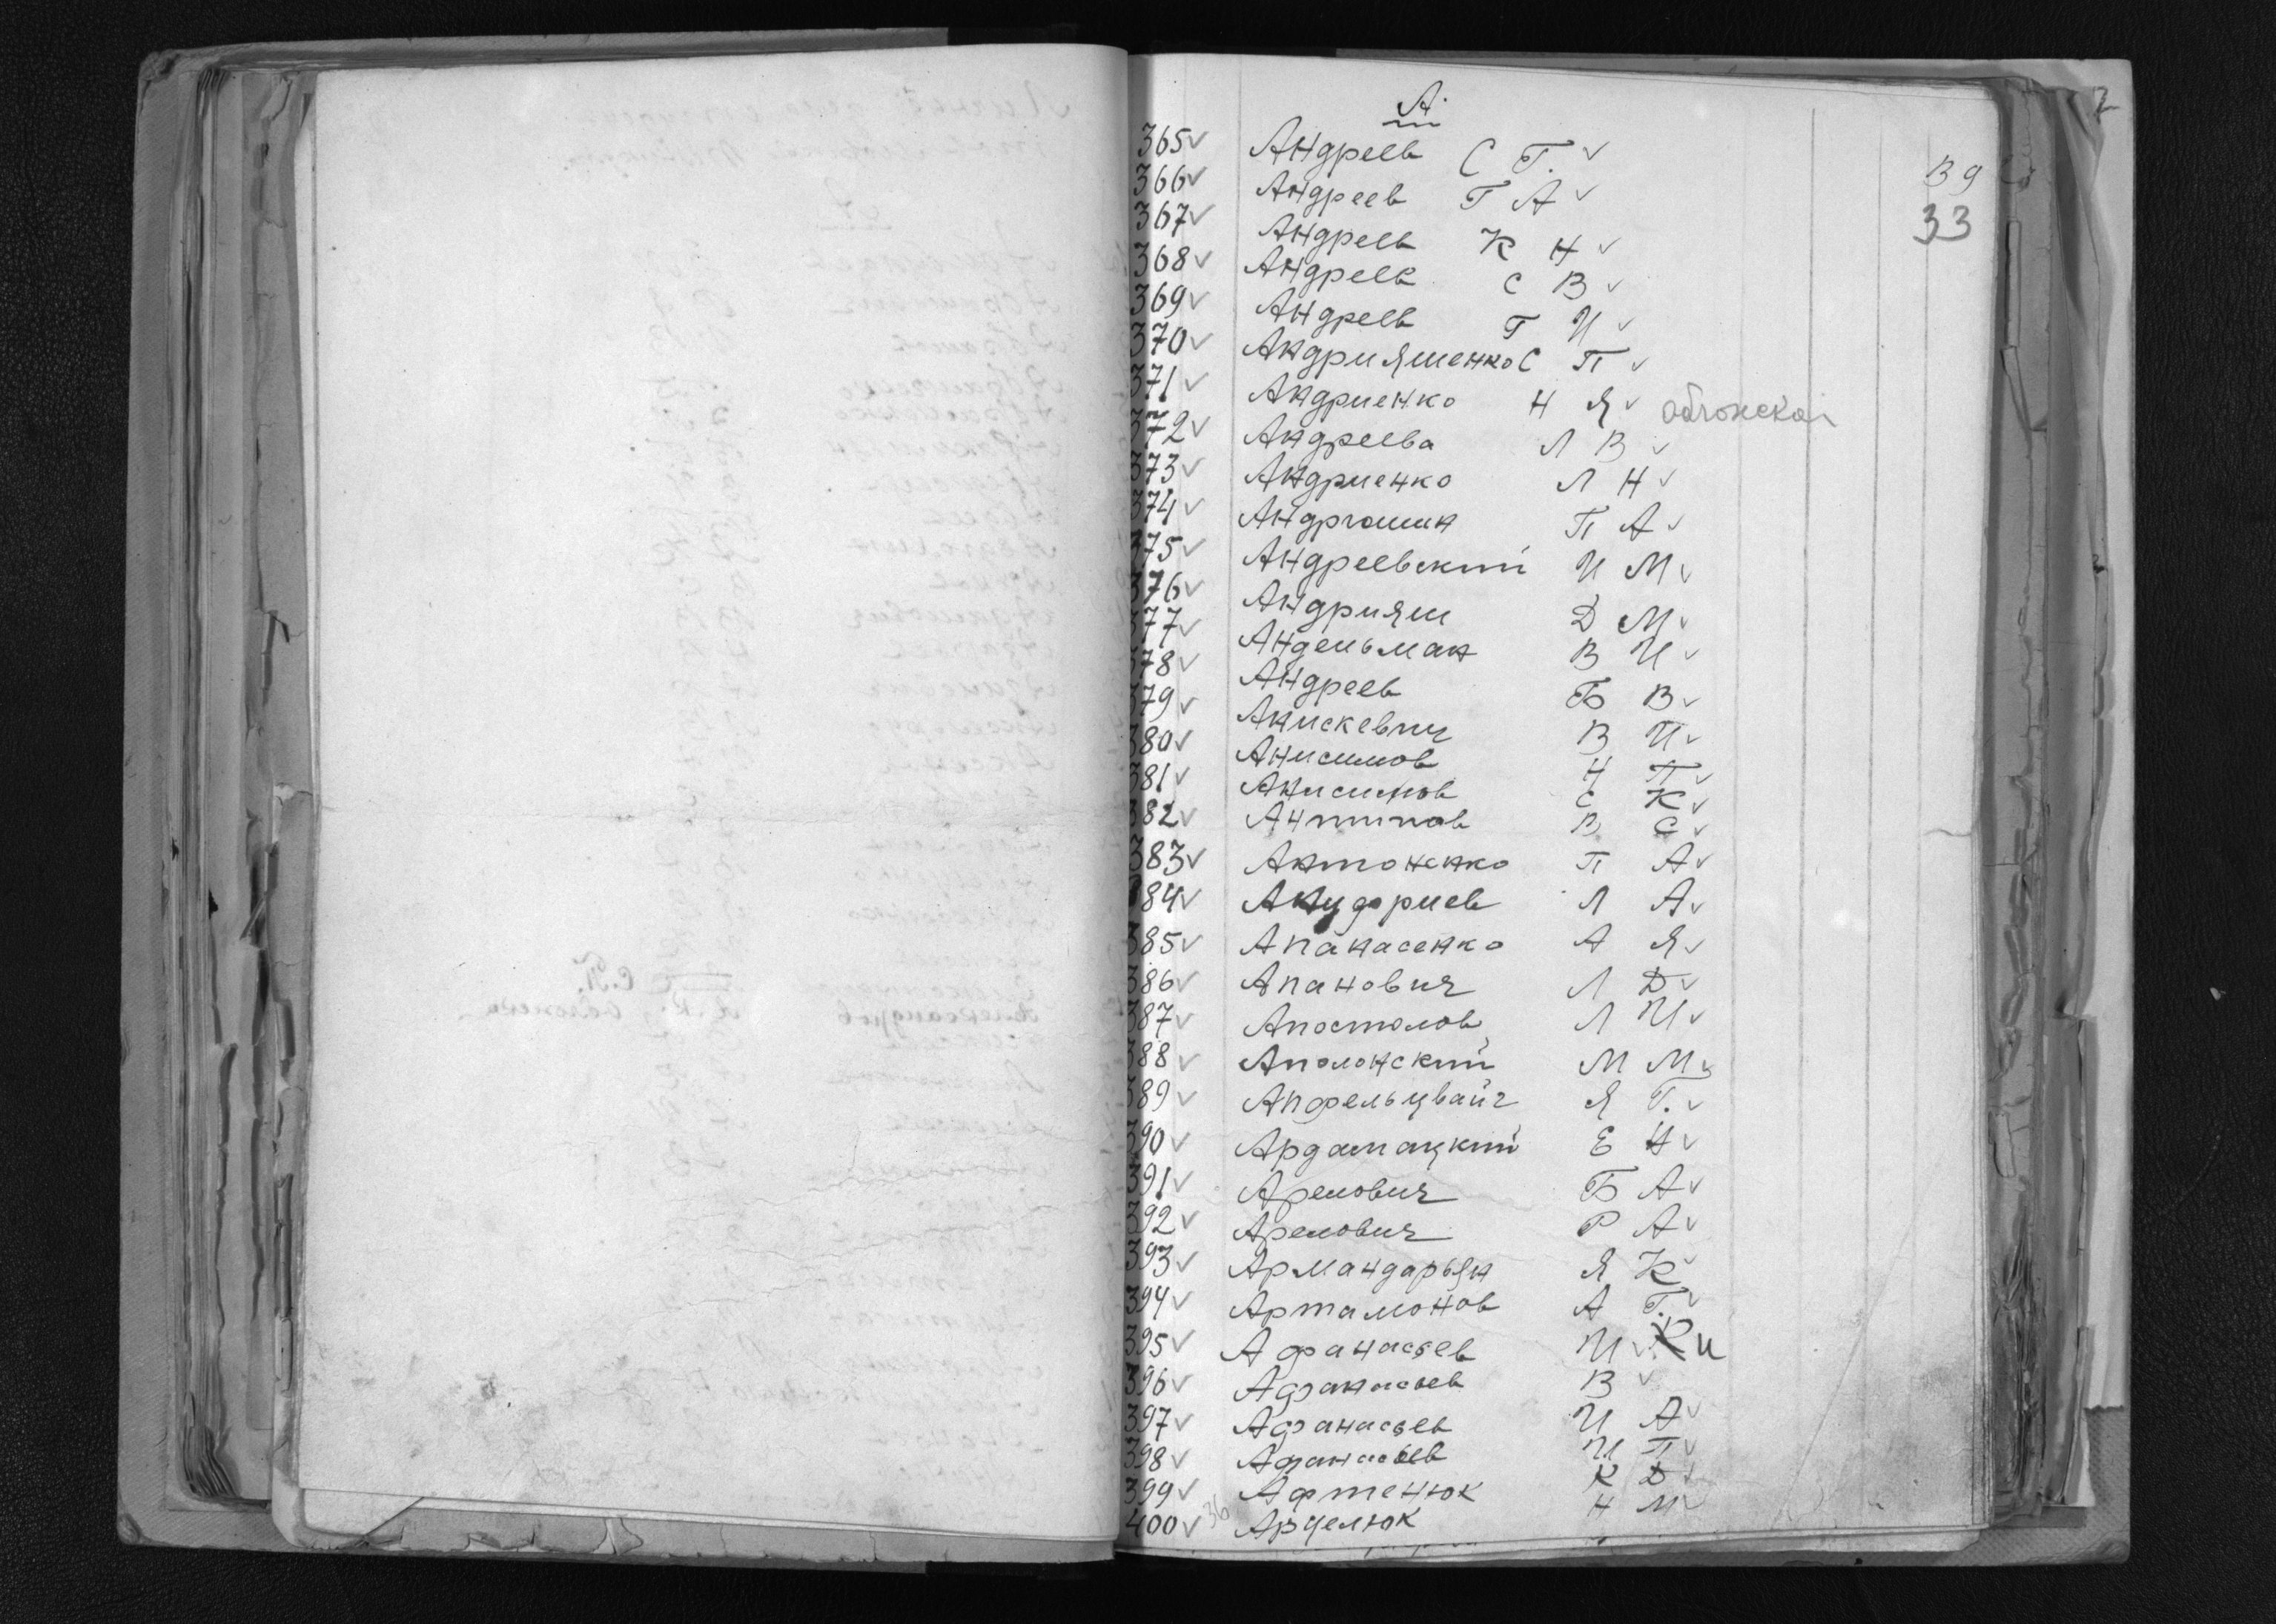 А.
39
33
365 Андреев С Г.
366 Андреев Г А
367 Андреев К Н
368 Андреев С В
369 Андреев Г И
370 Андрияшенко С П
371 Андриенко Н Я
372 Андреева Л В
373 Андриенко Л Н
374 Андрющин П А
375 Андреевский И М
376 Андрияш Д М
377 Андельман В И
378 Андреев Б В
379 Анискевич В И
380 Анисимов Н П
381 Анисимов С К
382 Антипов В С
383 Антоненко П А
384 Ануфриев Л А
385 Апанасенко А Я
386 Апанович Л Д
387 Апостолов Л И
388 Аполонский М М
389 Апфельцвайг Я Г.
390 Ардамацкий Е Н
391 Аренович Б А
392 Аренович Р А
393 Армандарьян Я К
394 Артамонов А Г.
395 Афанасьев И
396 Афанасьев В
397 Афанасьев И А
398 Афанасьев И П
399 Афтенюк К Д
400 Арцелюк Н М